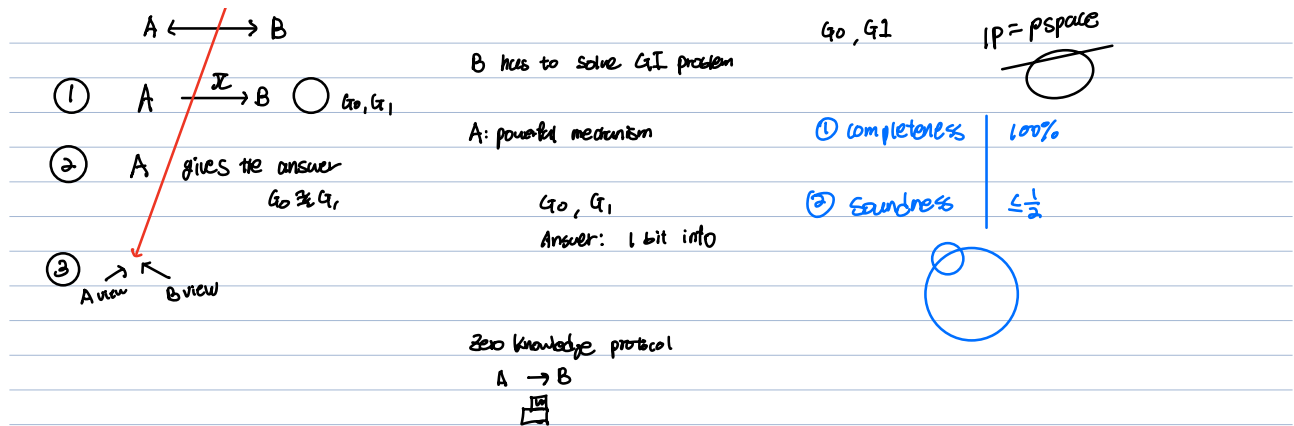 A ⟷ B
① A →π B G0, G1
② A gives the answer
G0 ≇ G1
③
A view B view
B has to solve GI problem
A: powerful mechanism
G0, G1
Answer: 1 bit info
Zero knowledge protocol
A → B
G0, GI
IP = PSPACE
① completeness 100%
② soundness ≤ 1/2